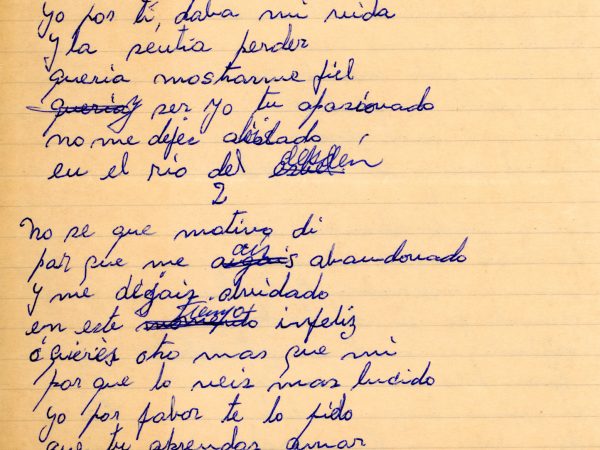 yo por ti, daba mi vida
y la sentia perder
queria mostrarme fiel
y ser yo tu apasionado
no me dejes aislado
en el río del desdén
2
No se que motivo di
par que me asi abandonado
y me dejais olvidado
en este tiempo infeliz
quieres otro mas que mi
por que lo veis mas lucido
yo por fabor te lo pido
que tu aprendas amar